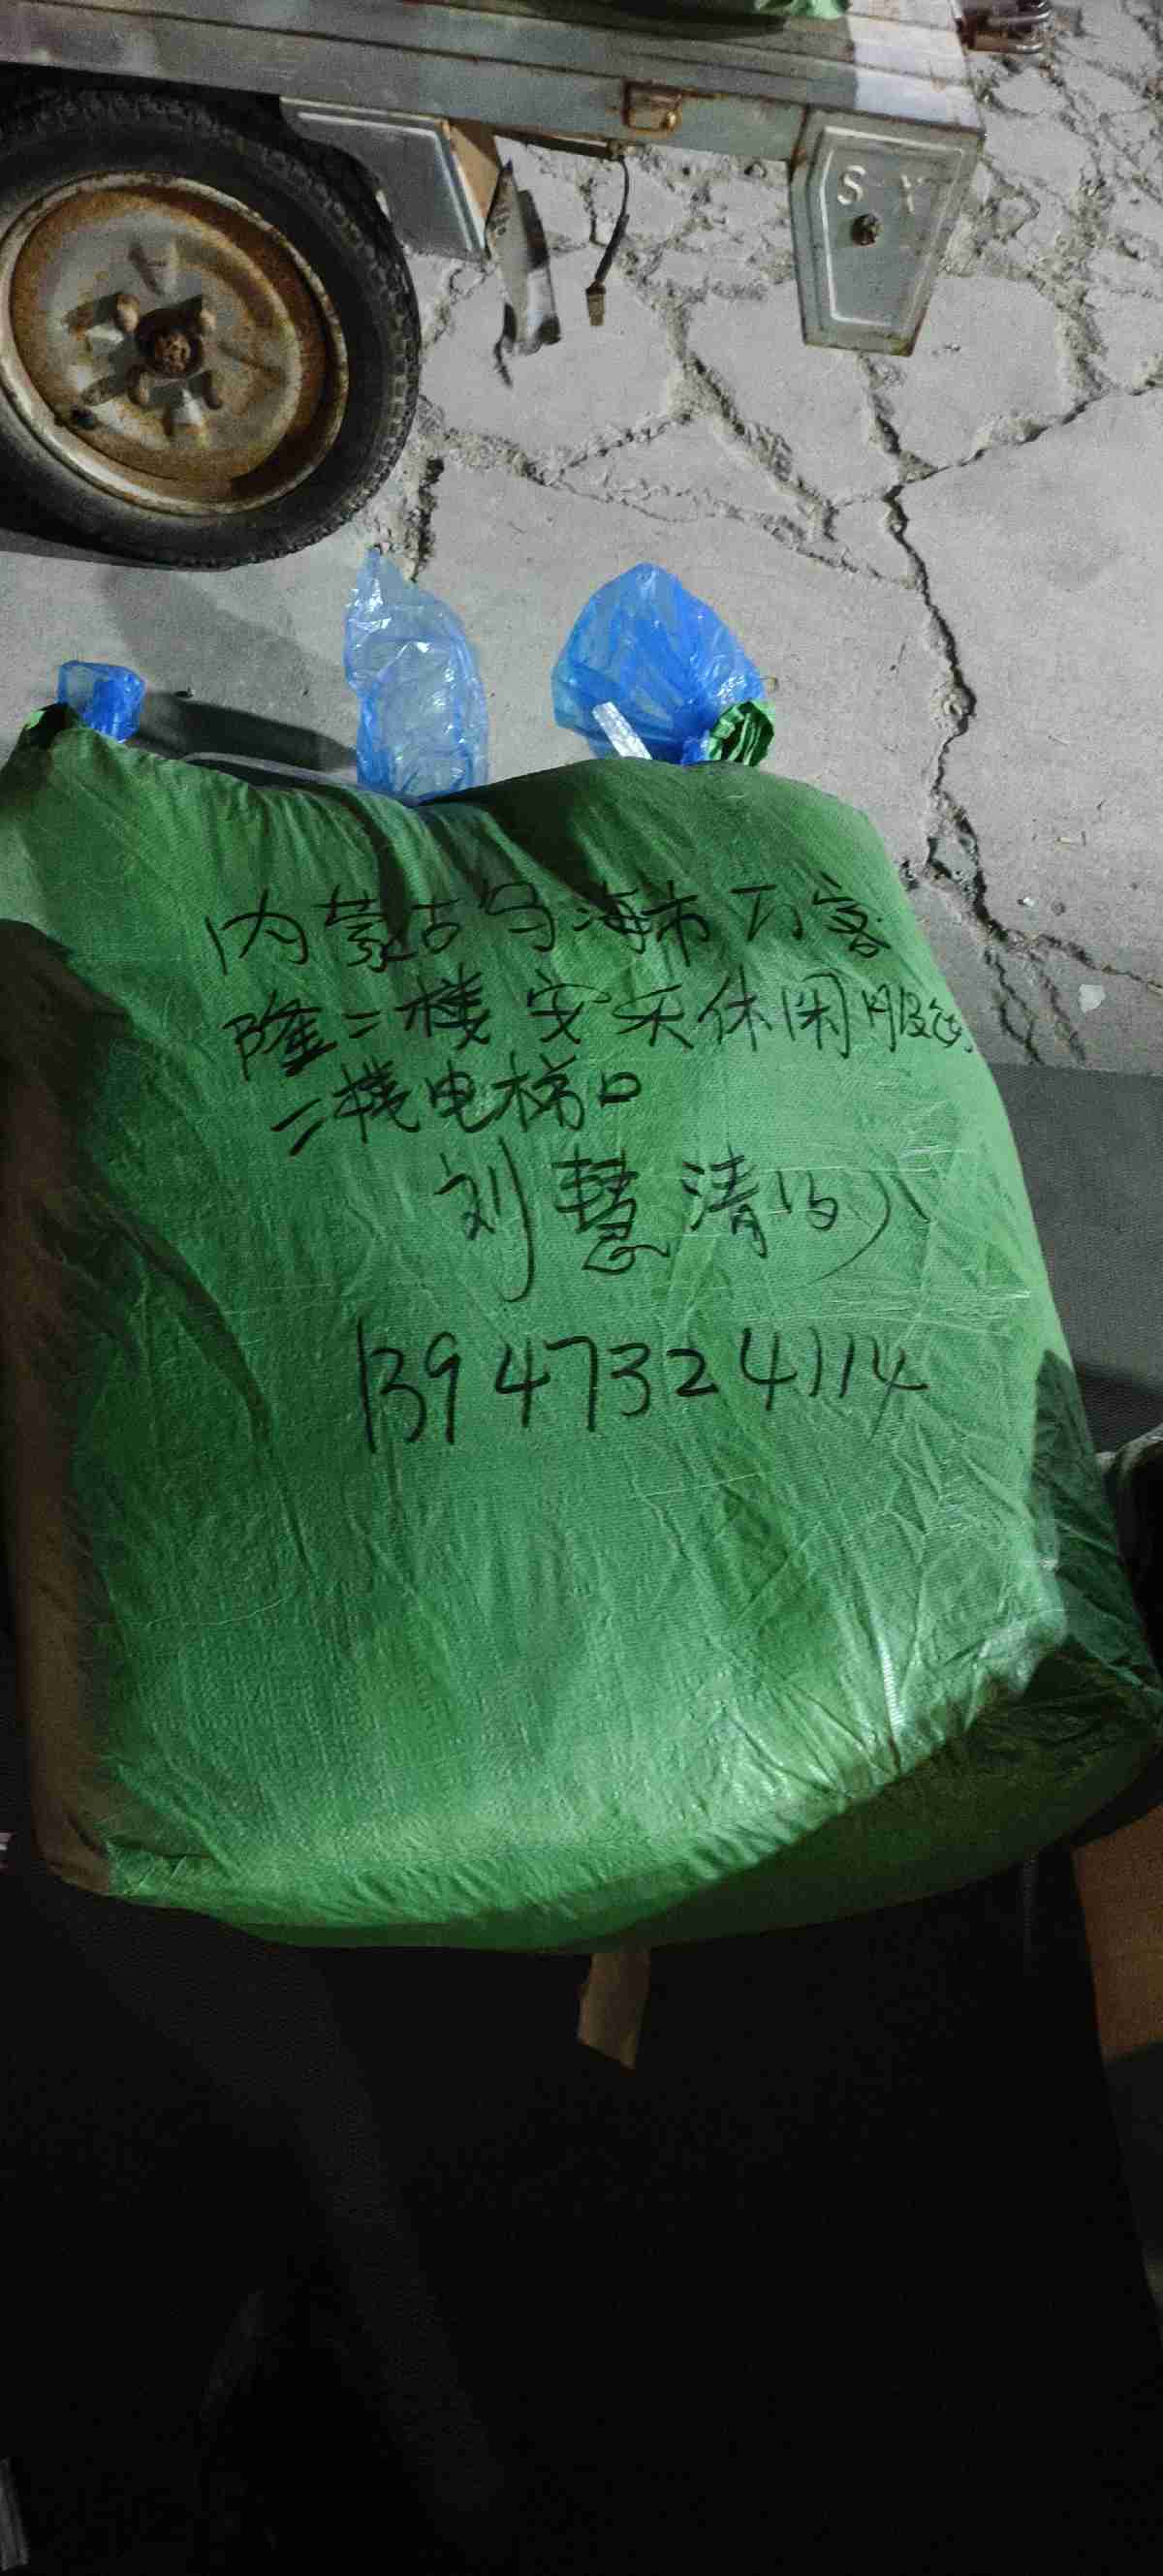 S Y
内蒙古乌海市万客
隆二楼安天休闲服饰
二楼电梯口
刘慧清收
13947324114